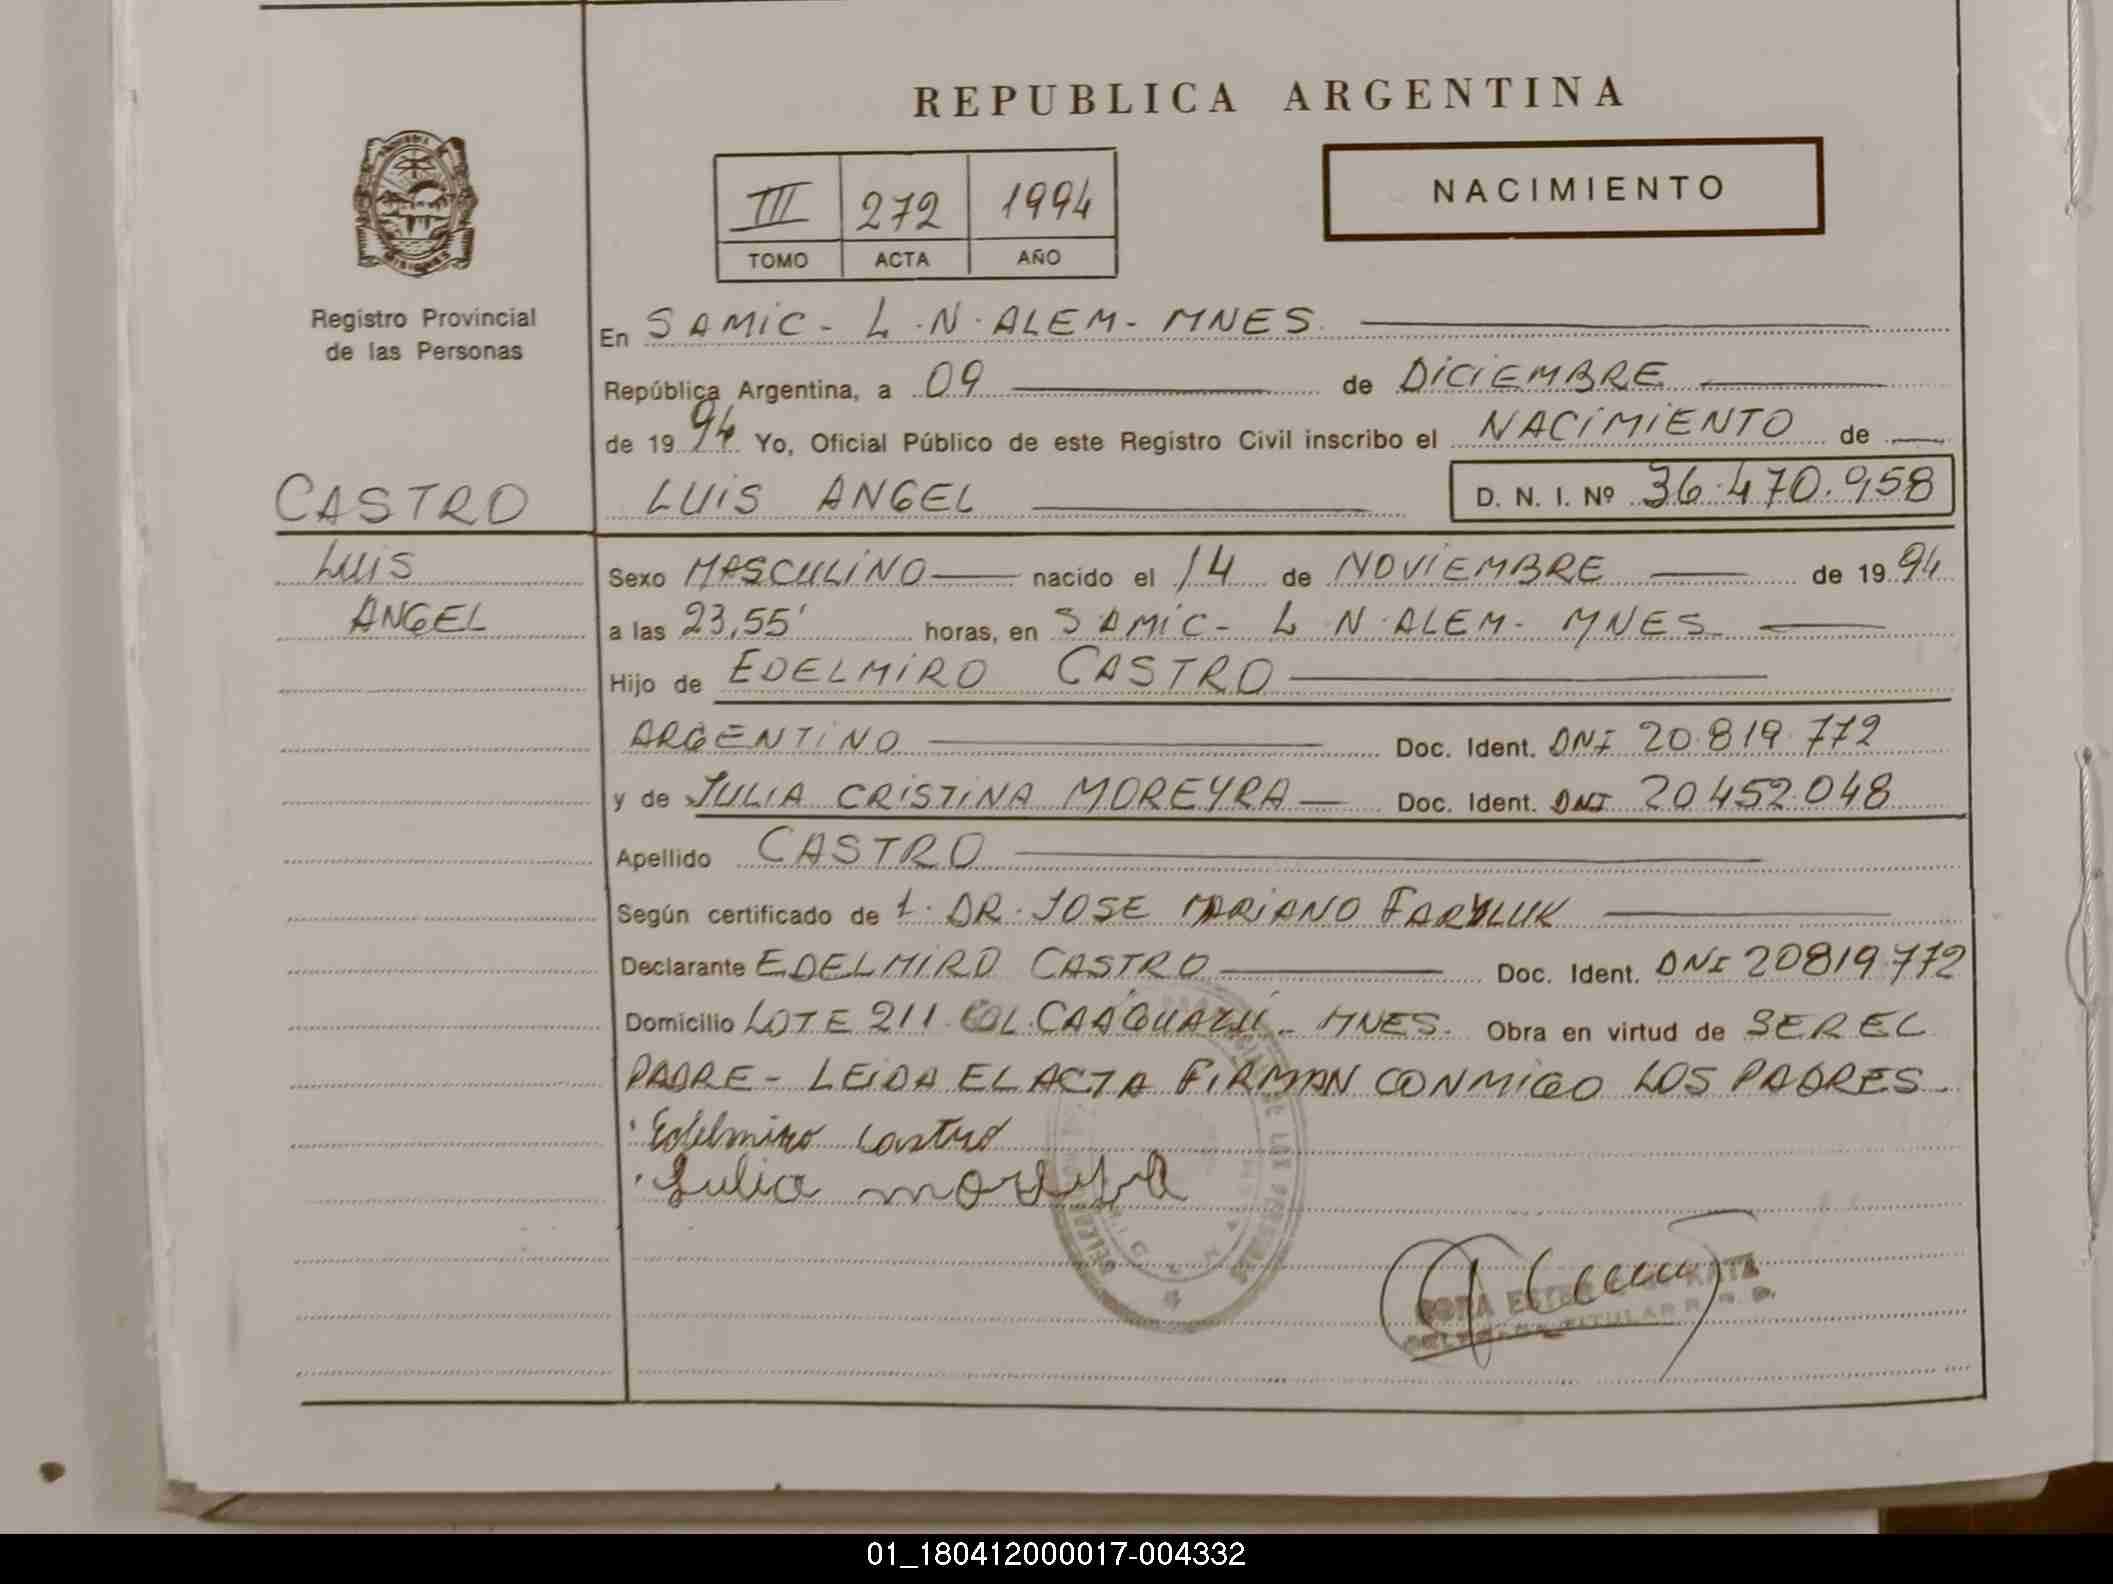 REPUBLICA ARGENTINA
NACIMIENTO
III 272 1994
TOMO ACTA AÑO
Registro Provincial
de las Personas
En SAMIC - L.N. ALEM - MNES.
República Argentina, a 09 de DICIEMBRE
de 1994 Yo, Oficial Público de este Registro Civil inscribo el NACIMIENTO de
CASTRO LUIS ANGEL D. N. I. Nº 36.470.958
LUIS
ANGEL
Sexo MASCULINO nacido el 14 de NOVIEMBRE de 1994
a las 23,55' horas, en SAMIC - L N. ALEM - MNES
Hijo de EDELMIRO CASTRO
ARGENTINO Doc. Ident. DNI 20.819.772
y de JULIA CRISTINA MOREYRA Doc. Ident. DNI 20.452.048
Apellido CASTRO
Según certificado de 1. DR. JOSE MARIANO
Declarante EDELMIRO CASTRO Doc. Ident. DNI 20819772
Domicilio LOTE 211 COL. CAAGUAZÚ - MNES. Obra en virtud de SER EL
PADRE - LEIDA EL ACTA FIRMAN CONMIGO LOS PADRES
Edelmiro Castro
Julia moreyra
TITULAR
01_180412000017-004332